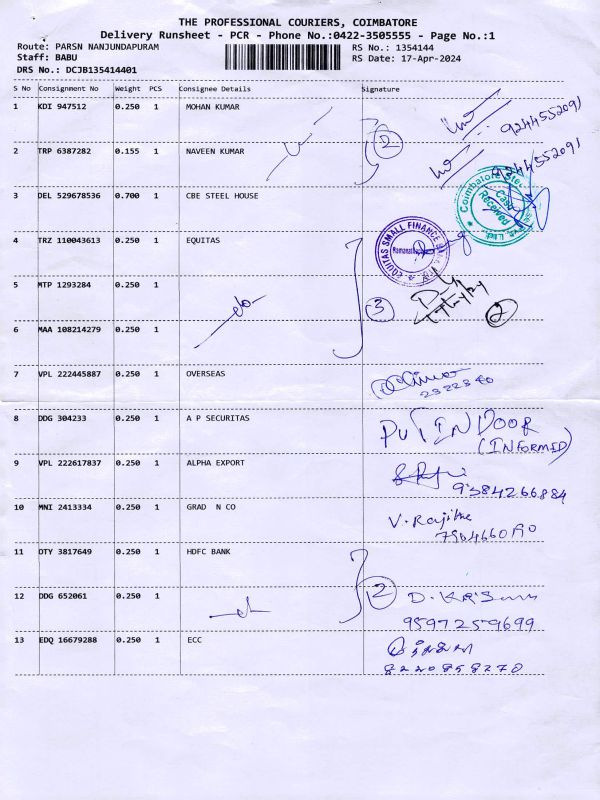 THE PROFESSIONAL COURIERS, COIMBATORE
Delivery Runsheet - PCR - Phone No.:0422-3505555 - Page No.:1
Route: PARSN NANJUNDAPURAM
RS No.: 1354144
Staff: BABU
RS Date: 17-Apr-2024
DRS No.: DCJB135414401
S No Consignment No Weight PCS Consignee Details Signature
1 KDI 947512 0.250 1 MOHAN KUMAR
9244552091
2 TRP 6387282 0.155 1 NAVEEN KUMAR
9244552091
2
3 DEL 529678536 0.700 1 CBE STEEL HOUSE
Coimbatore Steel
Cash Received
4 TRZ 110043613 0.250 1 EQUITAS
EQUITAS SMALL FINANCE
5 MTP 1293284 0.250 1
3
2
6 MAA 108214279 0.250 1
7 VPL 222445887 0.250 1 OVERSEAS
2322340
8 DDG 304233 0.250 1 A P SECURITAS
PUT IN DOOR
(INFORMED)
9 VPL 222617837 0.250 1 ALPHA EXPORT
9384266884
10 MNI 2413334 0.250 1 GRAD N CO
V. Rajitha
11 DTY 3817649 0.250 1 HDFC BANK
12 DDG 652061 0.250 1
2
9597259699
13 EDQ 16679288 0.250 1 ECC
8220858278